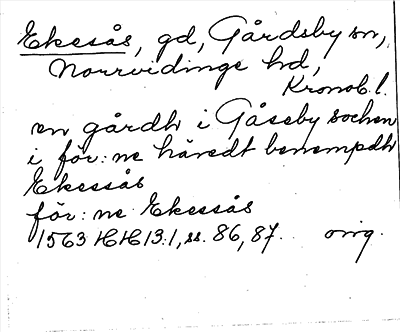 Ekesås, gd, Gårdsby sn,
Norrvidinge hd,
Kronob. l.
en gårdh i Gåseby sochen
i för:ne häredt benempdh
Ekessås
för:ne Ekessås
1563 HH 13:1, ss. 86, 87. orig.